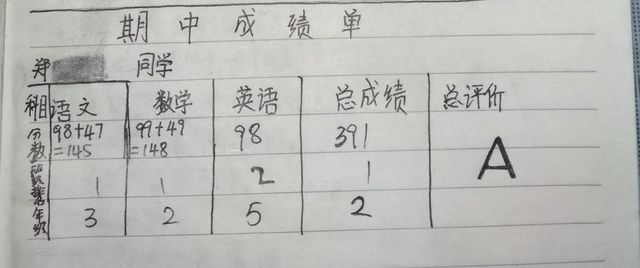 期中成绩单
郑 同学
科目 语文 数学 英语 总成绩 总评价
分数 98+47=145 99+49=148 98 391 A
班 1 1 2 1
年级 3 2 5 2